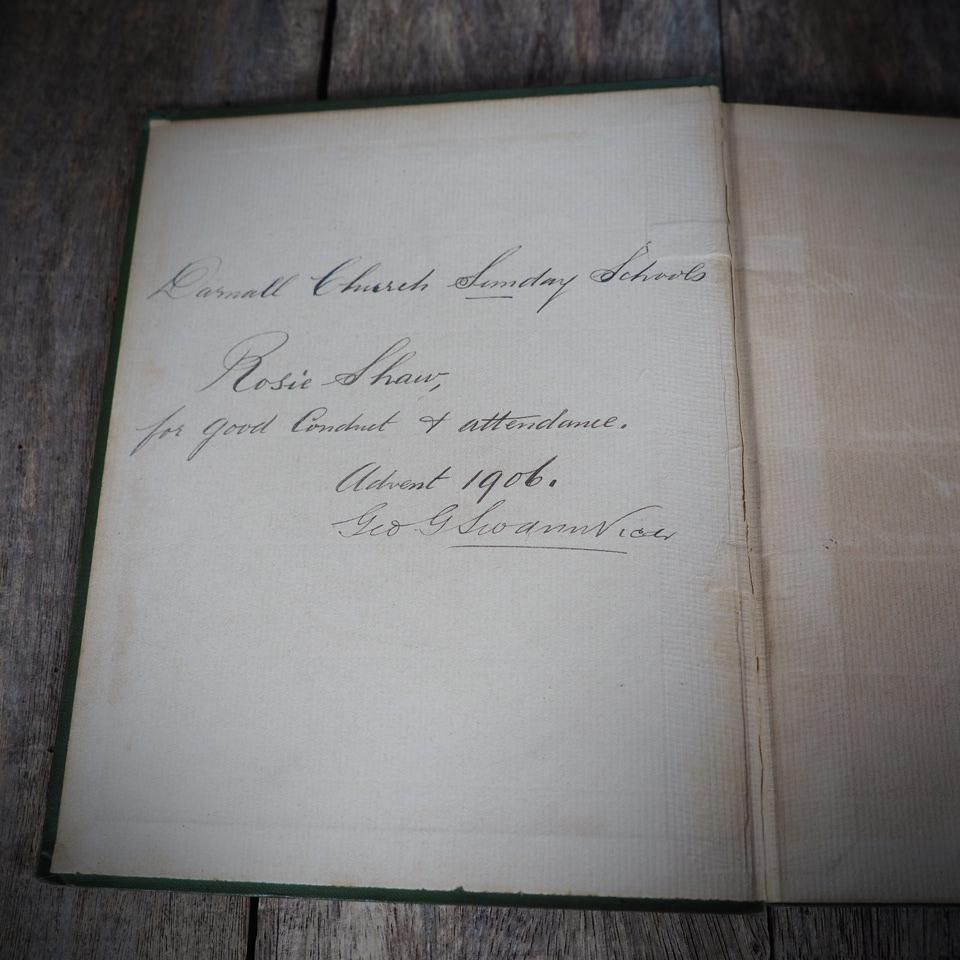 Darnall Church Sunday Schools
Rosie Shaw,
for good Conduct & attendance.
Advent 1906.
Geo G Swann Vicar